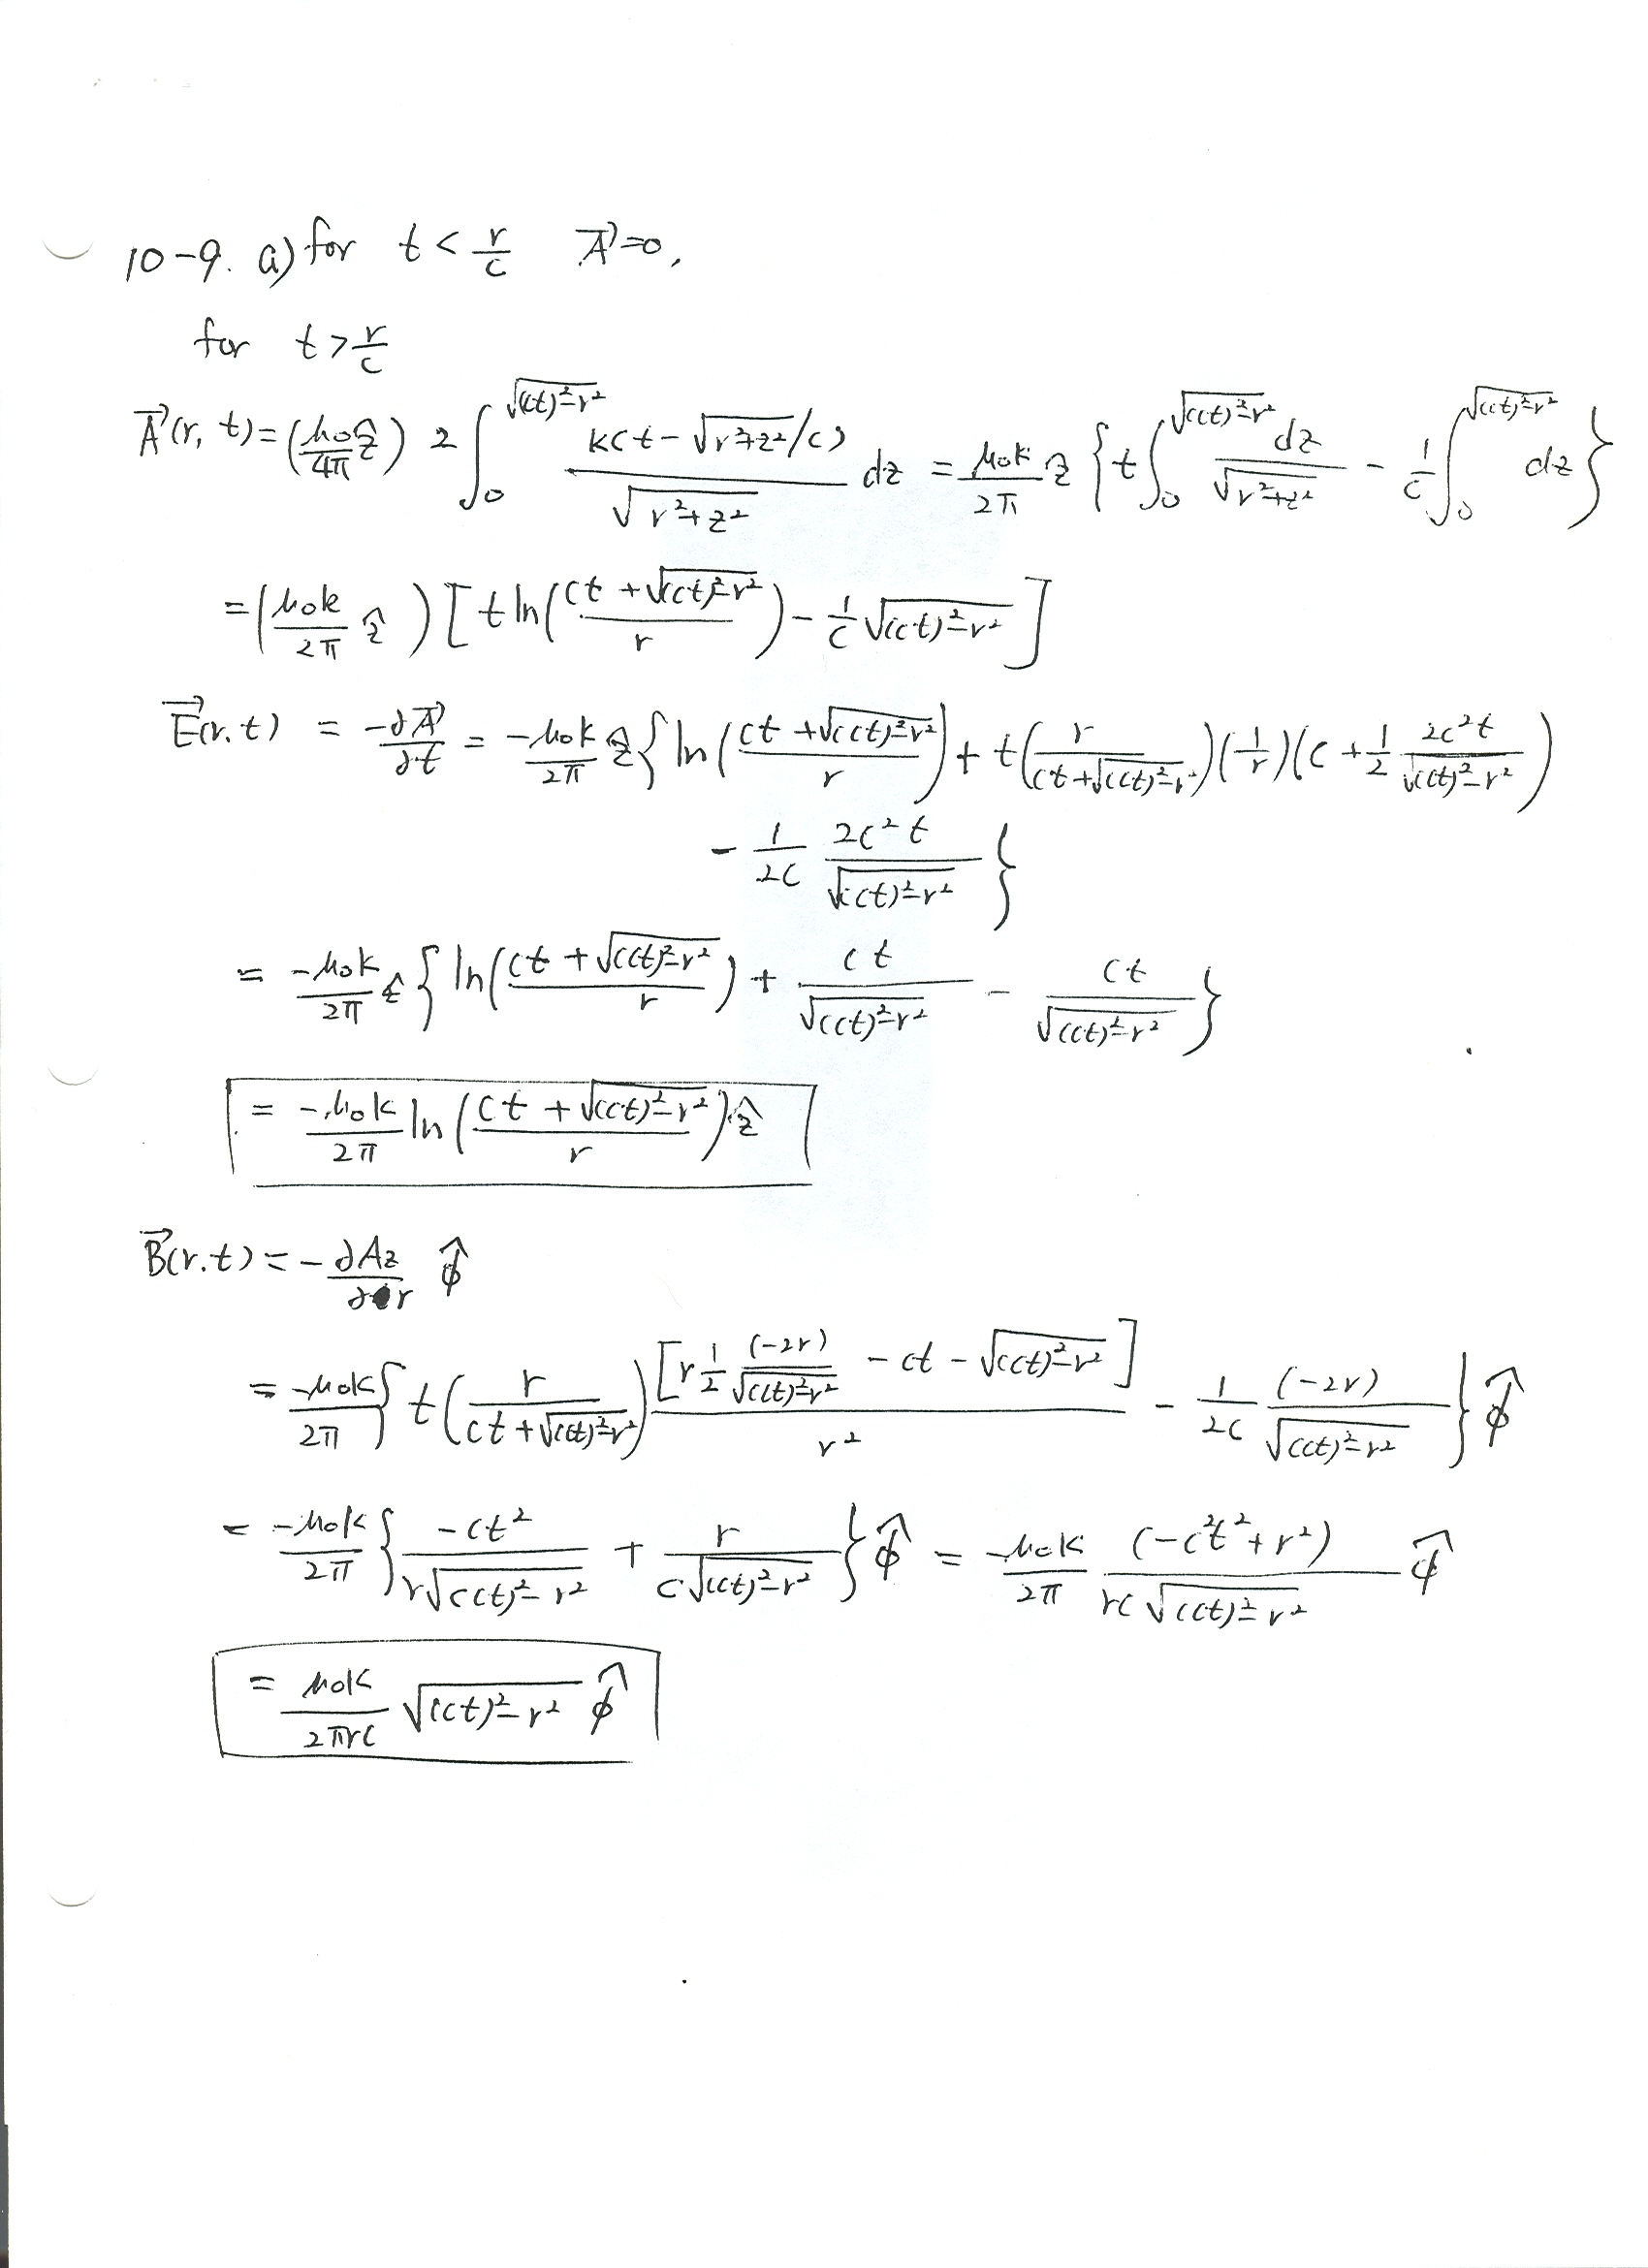 10-9. a) for t < r/c  A⃗=0,
for t > r/c
A⃗(r, t) = (μ₀/4π ẑ) 2 ∫₀^√((ct)²-r²) k(t-√(r²+z²)/c)/√(r²+z²) dz = μ₀k/2π ẑ {t∫₀^√((ct)²-r²) dz/√(r²+z²) - 1/c ∫₀^√((ct)²-r²) dz}
= (μ₀k/2π ẑ) [t ln((ct + √((ct)²-r²))/r) - 1/c √((ct)²-r²)]
E⃗(r,t) = -∂A⃗/∂t = -μ₀k/2π ẑ {ln((ct + √((ct)²-r²))/r) + t(r/(ct + √((ct)²-r²)))(1/r)(c + 1/2 2c²t/√((ct)²-r²))
- 1/2c 2c²t/√((ct)²-r²)}
= -μ₀k/2π ẑ {ln((ct + √((ct)²-r²))/r) + ct/√((ct)²-r²) - ct/√((ct)²-r²)}
= -μ₀k/2π ln((ct + √((ct)²-r²))/r) ẑ
B⃗(r,t) = -∂Az/∂r φ̂
= -μ₀k/2π {t(r/(ct + √((ct)²-r²))) [r 1/2 (-2r)/√((ct)²-r²) - ct - √((ct)²-r²)]/r² - 1/2c (-2r)/√((ct)²-r²)} φ̂
= -μ₀k/2π {-ct²/(r√((ct)²-r²)) + r/(c√((ct)²-r²))} φ̂ = -μ₀k/2π (-c²t²+r²)/(rc√((ct)²-r²)) φ̂
= μ₀k/2πrc √((ct)²-r²) φ̂